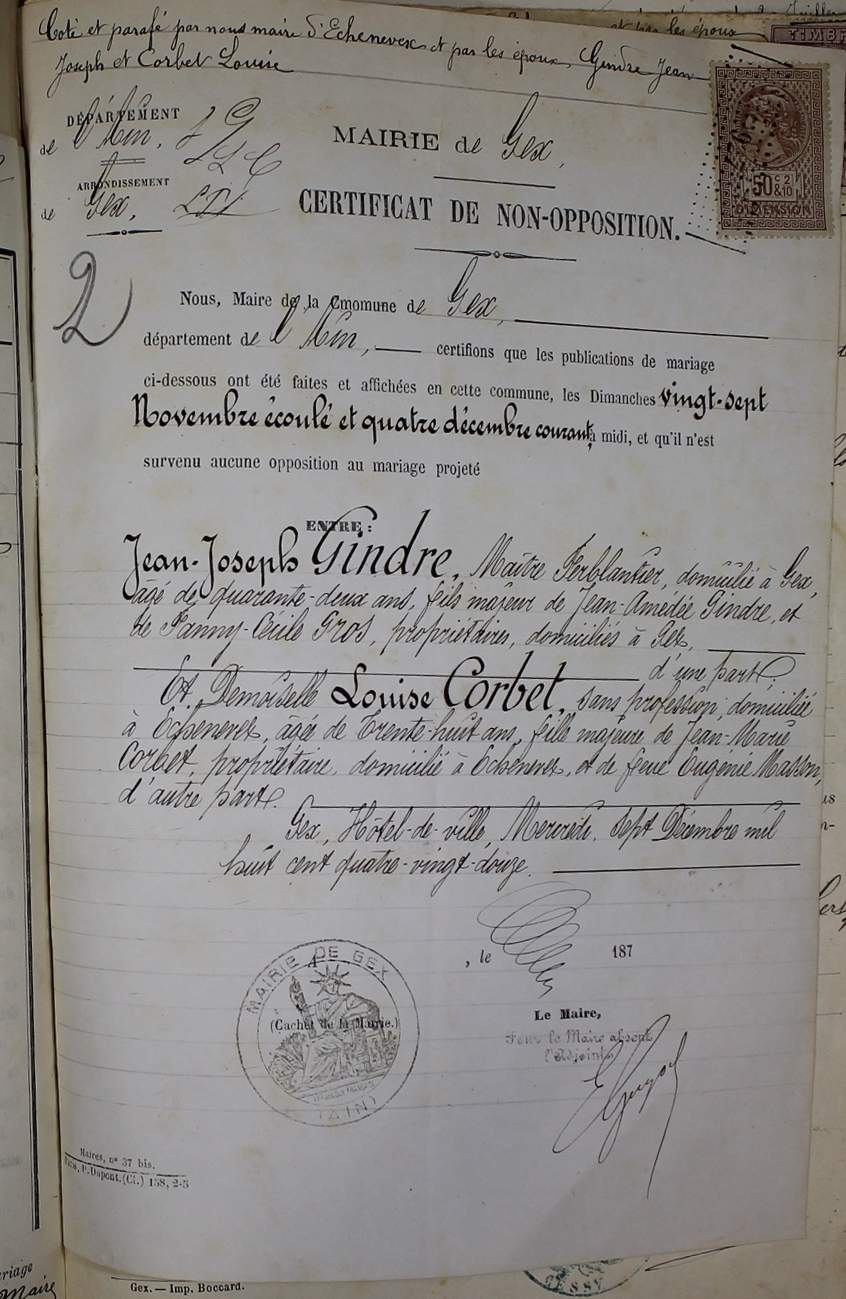 Coté et parafé par nous maire d'Echenevex et par les époux, Gindre Jean
Joseph et Corbet Louise
et par les époux
Juillet
TIMBR
DÉPARTEMENT
de l'Ain,
ARRONDISSEMENT
de Gex,
MAIRIE de Gex,
CERTIFICAT DE NON-OPPOSITION.
50 c 2 & 10
DIMENSION
2
Nous, Maire de la Cmomune de Gex,
département de l'Ain, certifions que les publications de mariage
ci-dessous ont été faites et affichées en cette commune, les Dimanches vingt-sept
Novembre écoulé et quatre décembre courant, à midi, et qu'il n'est
survenu aucune opposition au mariage projeté
ENTRE :
Jean-Joseph Gindre, Maître Ferblantier, domicilié à Gex,
âgé de quarante-deux ans, fils majeur de Jean-Amédée Gindre, et
de Fanny-Cécile Gros, propriétaires, domiciliés à Gex,
d'une part;
Et Demoiselle Louise Corbet, sans profession, domiciliée
à Echenevex, âgée de trente-huit ans, fille majeure de Jean-Marie
Corbet, propriétaire, domicilié à Echenevex, et de feue Eugénie Masson,
d'autre part.
Gex, Hôtel-de-ville, Mercredi, sept Décembre mil
huit cent quatre-vingt-douze.
, le 187
MAIRIE DE GEX
(Cachet de la Mairie.)
(AIN)
Le Maire,
Pour le Maire absent
l'Adjoint
Maires, nº 37 bis.
Paris, P. Dupont. (Cl.) 158, 2-5
Gex. — Imp. Boccard.
CESSY